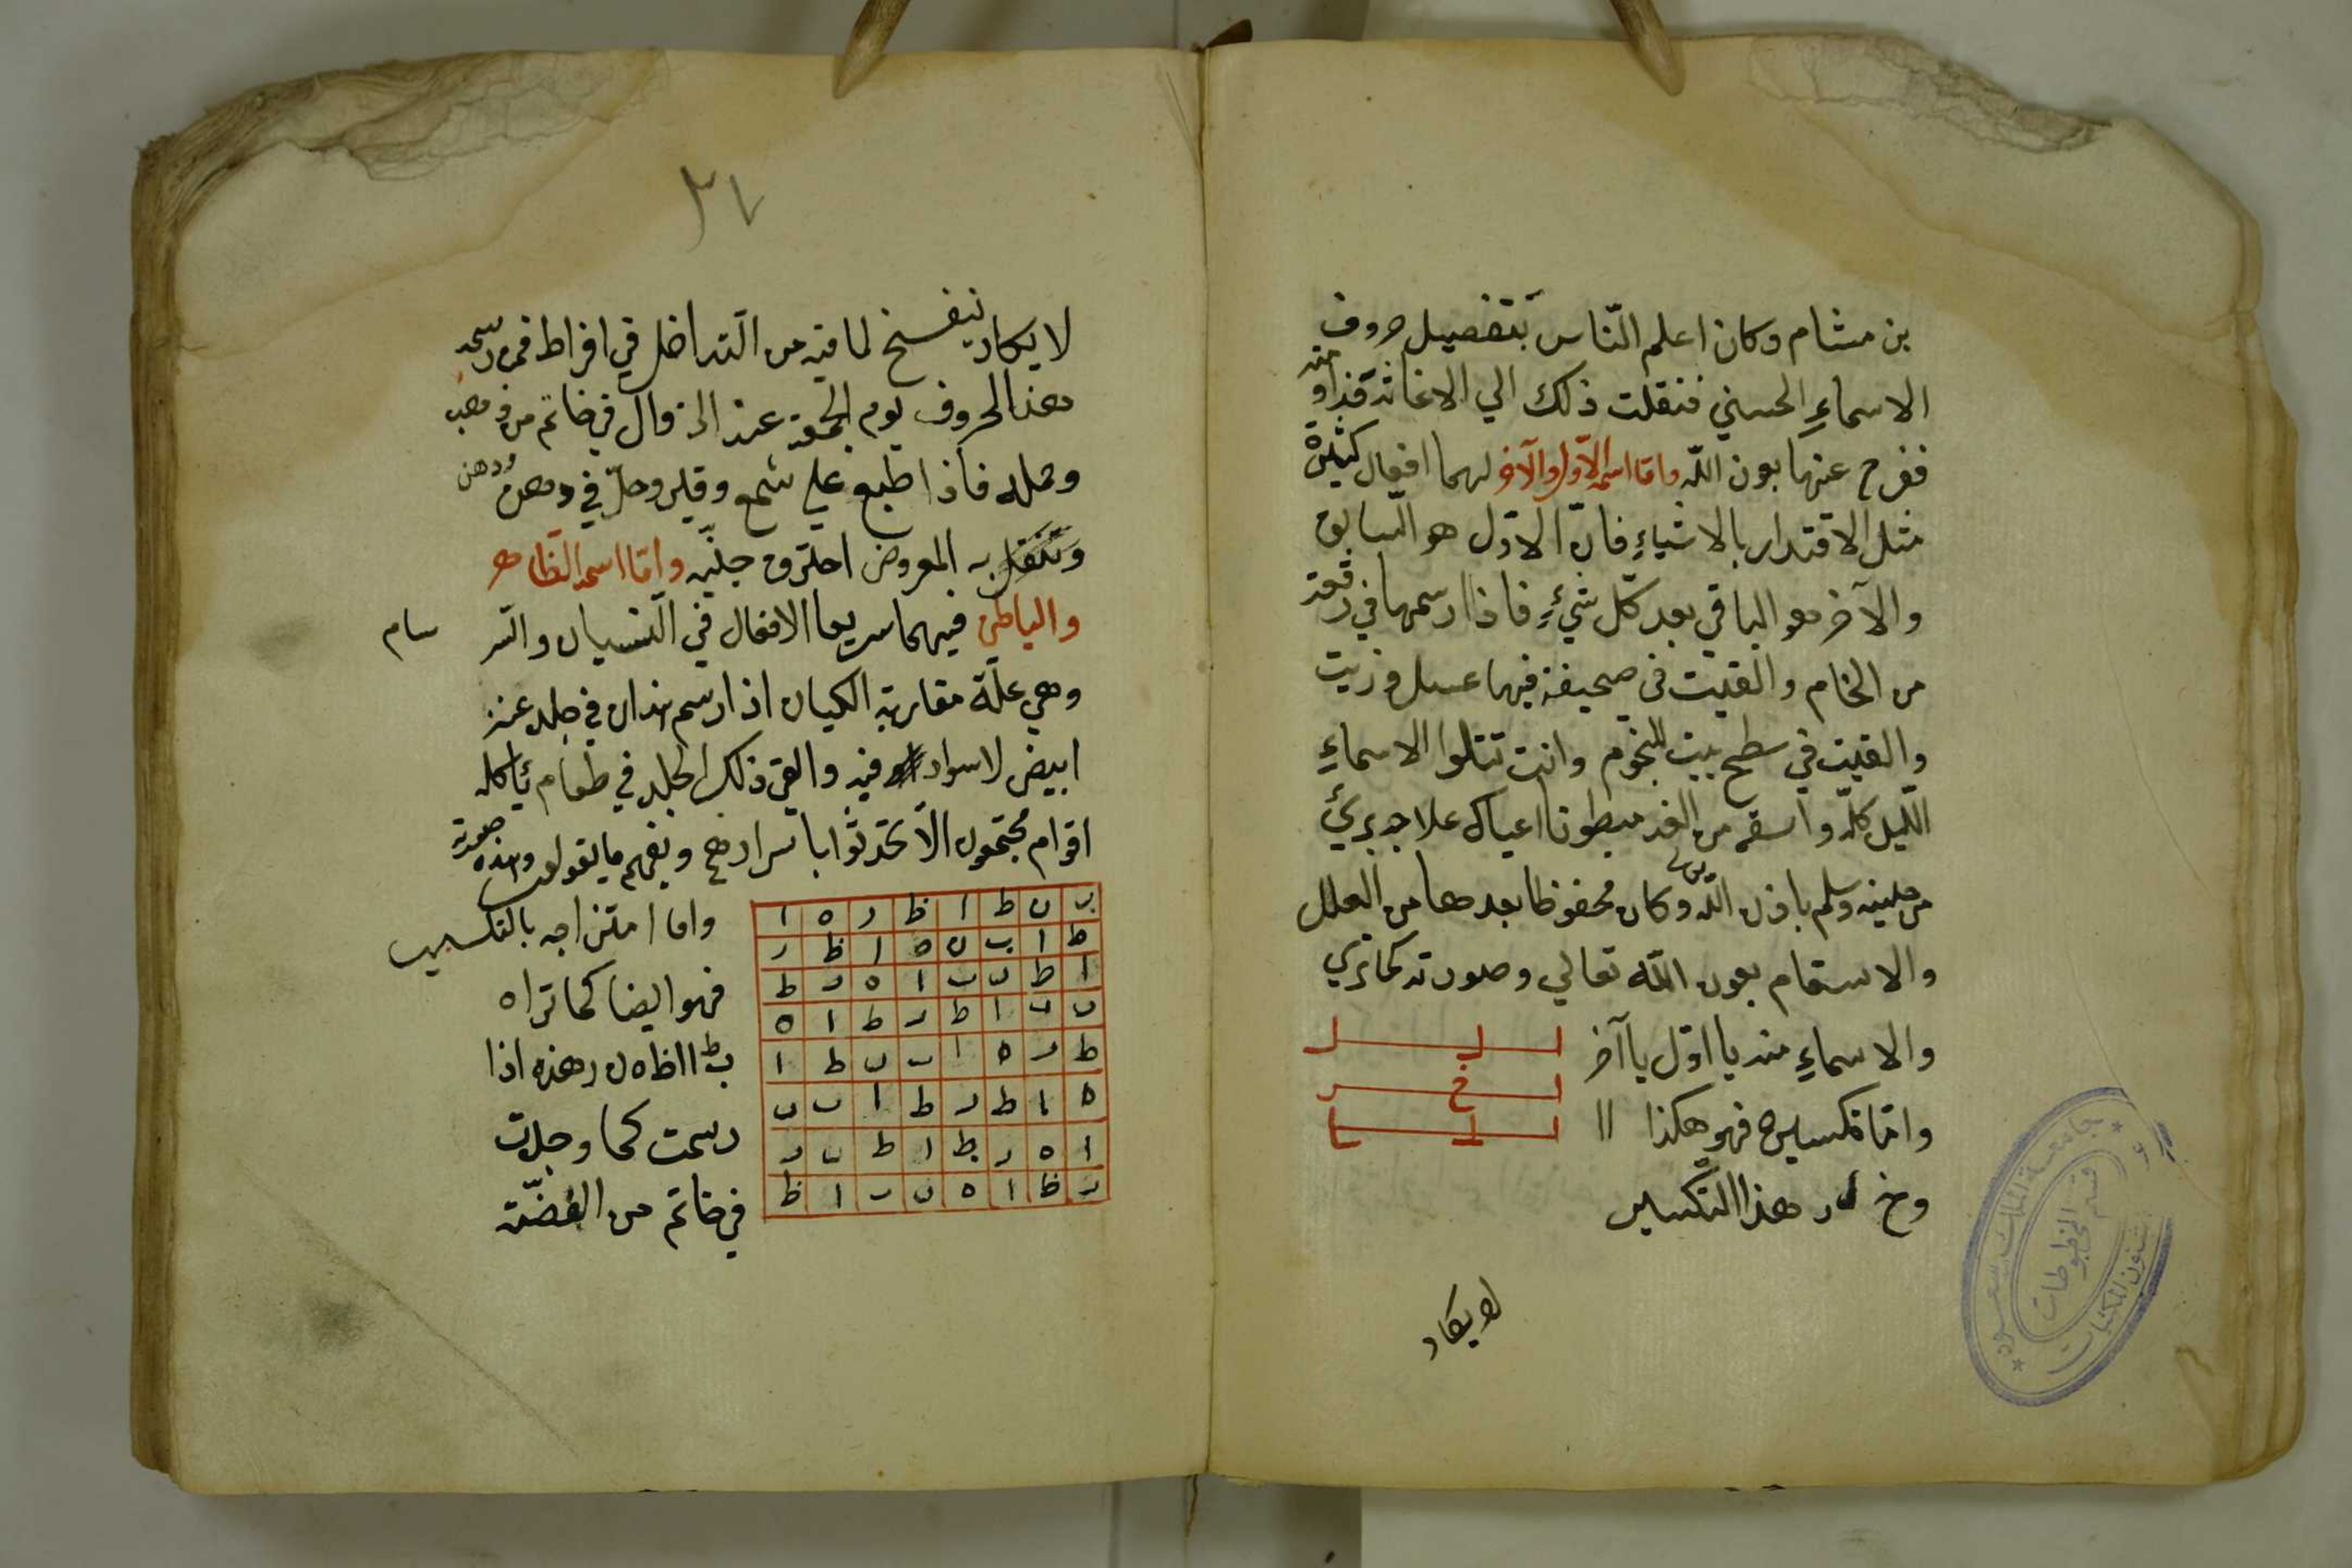 بن هشام وكان اعلم النّاس بتفصيل حروف
الاسماءِ الحسني فنقلت ذلك الي الاغاثة
ففرج عنها بعون اللّه وامّا اسمه الاوّل والآخر لهما افعال كثيرة
مثل الاقتدار بالاشياءِ فانّ الاوّل هو السّابق
والآخر هو الباقي بعد كلّ شيءٍ فاذا ارسمها في رقعة
من الخام والقيت في صحيفة فيها عسل وزيت
والقيت في سطح بيت للنجوم وانت تتلوا الاسماءِ
اللّيل كلّه واسقه من الغد مبطونا اعياك علاجه برئَ
من حينه وسلم باذن اللّه وكان محفوظا بعدها من العلل
والاسقام بعون اللّه تعالي وصورته كما تري
والاسماءِ منه يا اوّل يا آخر
وامّا تكسيره فهو هكذا اا
وخ ار هذا التّكسير
لا يكاد
جامعة الملك سعود
قسم المخطوطات
شئون المكتبات
٢٧
لا يكاد ينفسخ لما فيه من التداخل في افراط فمن رسمه
هذا الحروف يوم الجمعة عند الزوال في خاتم من ذهب
وحمله فاذا طبع علي شمع وقير وحلّ في دهن
به المعروض احترق جنّيه وامّا اسمه الظاهر
والباطن فيهما سريعا الافعال في النسيان والسر
سام
وهي علّة مقاربة الكيان اذا رسم هذان في جلد عنز
ابيض لاسواد فيه والقي ذلك الجلد في طعام ياكله
اقوام مجتمعون الّا تحدثوا باسرارهم ويفهم ما يقولون وهذه صورته
ب ن ط ا ظ ر ه ا
ط ا ب ن ه ا ظ ر
ا ط ن ب ا ه ر ط
ن ب ا ط ر ط ا ه
ط ر ه ا ب ن ط ا
ه ا ط ر ط ا ب ن
ا ه ر ط ا ط ن ر
ر ظ ا ه ن ب ا ظ
واما امتزاجه بالتكسير
فهو ايضا كما تراه
ب ط ا ا ظ ه ن ر هذه اذا
رسمت كما وجدت
في خاتم من الفضّة